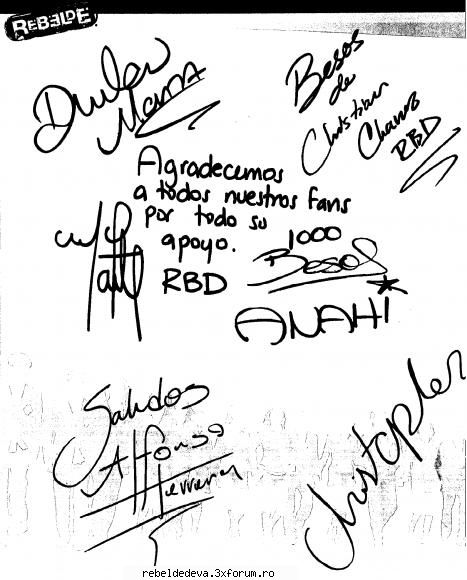 REBELDE
Dulce
Maria
Besos
de
Christian
Chavez
RBD
Agradecemos
a todos nuestros fans
por todo su
apoyo.
RBD
1000
Besos
ANAHI
Saludos
Alfonso
Herrera
Christopher
rebeldedeva.3xforum.ro